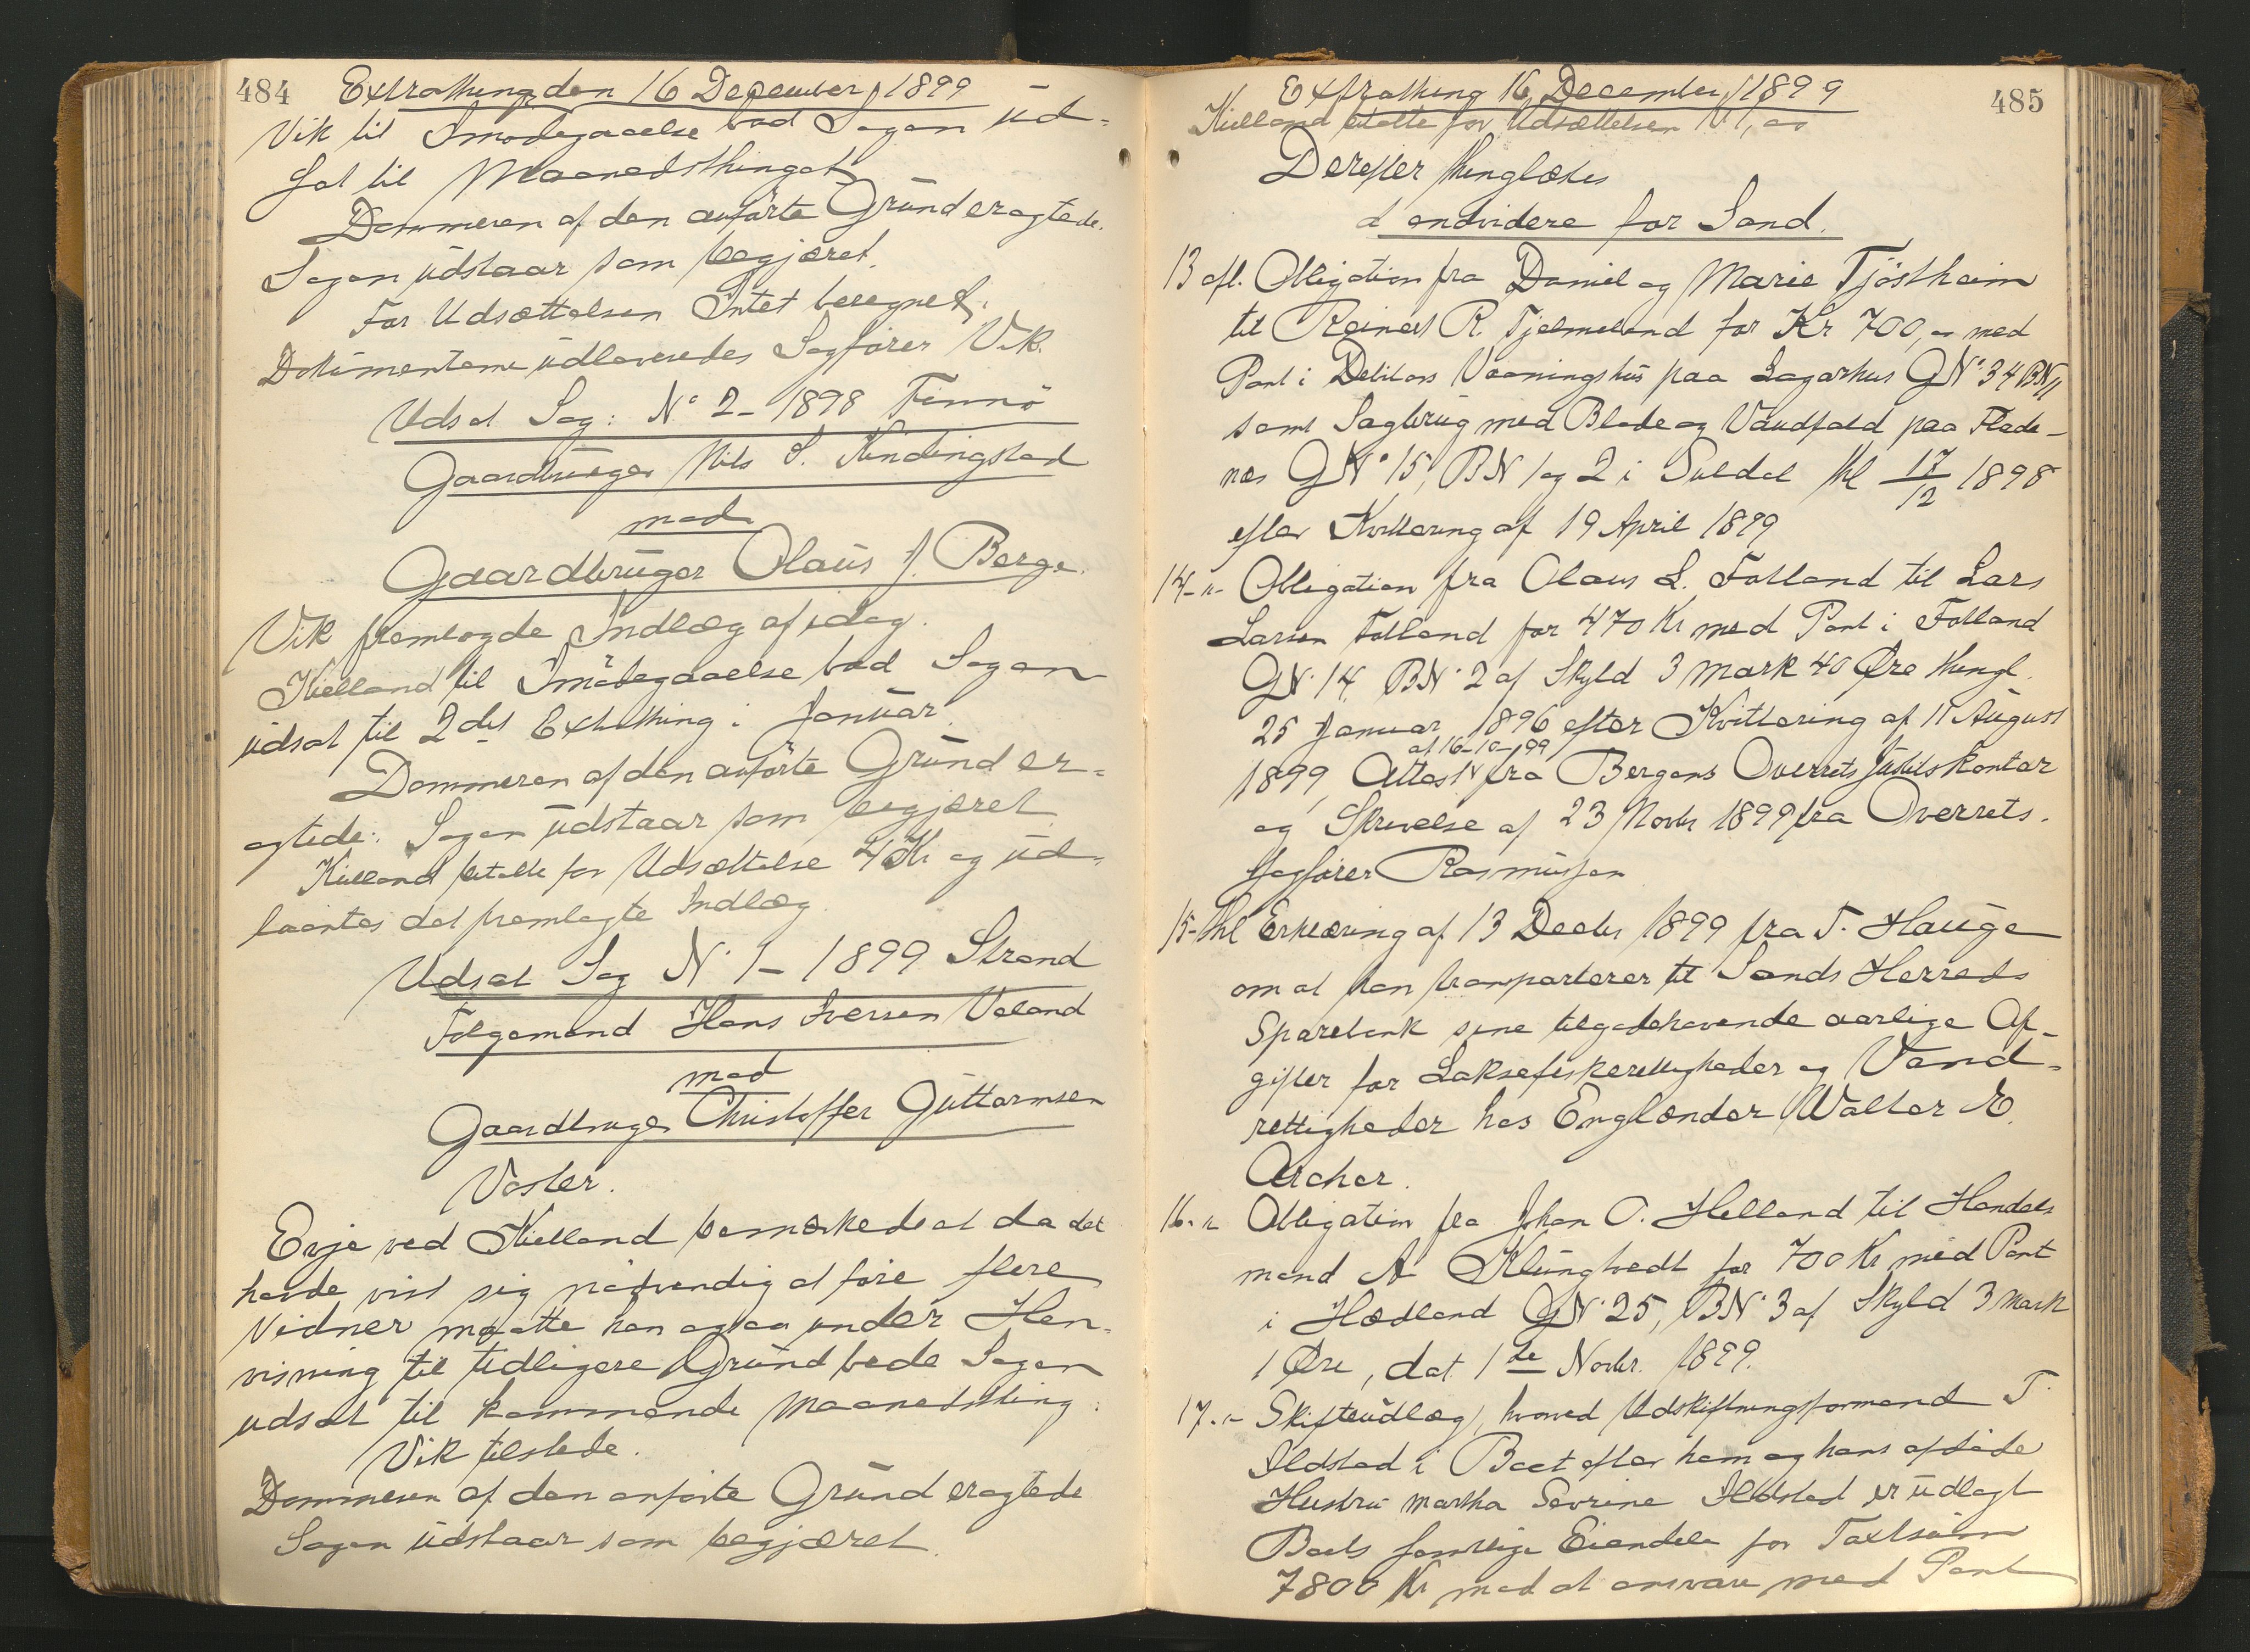 484 Extrathing den 16 December 1899
Vik til Imødegaaelse bad Sagen ud-
sat til Maanedsthinget
Dommeren af den anførte Grund eragtede.
Sagen udstaar som begjæret.
For Udsættelsen Intet beregnet.
Dokumenterne udleveredes Sagfører Vik.
Udsat Sag: No 2 - 1898 Finnö
Gaardbruger Nils S. Kindingstad
mod
Gaardbruger Olaus J. Berge.
Vik fremlagde Indlæg af idag.
Kielland til Imödegaaelse bad Sagen
udsat til 2det Extrathing i Januar.
Dommeren af den anförte Grund er-
agtede: Sagen udstaar som begjæret
Kielland betalte for Udsættelse 4 Kr og ud-
laantes det fremlagte Indlæg
Udsat Sag No 1 - 1899 Strand
Følgemand Hans Iversen Veland
mod
Gaardbruger Christoffer Guttormsen
Vaster.
Evje ved Kielland bemærkede at da det
havde vist sig nødvendig at føre flere
Vidner maatte han ogsaa under Hen-
visning til tidligere Grund bede Sagen
udsat til kommende Maanedsthing.
Vik tilstede.
Dommeren af den anførte Grund eragtede
Sagen udstaar som begjæret.
Extrathing 16 December 1899 485
Kielland betalte for Udsættelsen
Derefter thinglæstes
d endvidere for Sand.
13 afl. Obligation fra Daniel og Marie Tjöstheim
til Reinert R. Tjelmeland for Kr 700,- med
Pant i Debitors Vaaningshus paa Lagarhus GNo 34 BN 11
samt Sagbrug med Blade og Vandfald paa Flade-
næs GNo 15, BN 1 og 2 i Suldal thl 17/12 1898
efter Kvittering af 19 April 1899
14 -"- Obligation fra Olaus L. Fatland til Lars
Larsen Fatland for 470 Kr med Pant i Fatland
GNo 14, BNo 2 af Skyld 3 Mark 40 Øre thingl.
25 Januar 1896 efter Kvittering af 11 August
af 16-10-99
1899, Attest fra Bergens Overrets Justitskontor
og Skrivelse af 23 Novbr 1899 fra Overrets-
sagfører Rasmussen
15 - thl Erklæring af 13 Decbr 1899 fra T. Hauge
om at han transporterer til Sands Herreds
Sparebank sine tilgodehavende aarlige Af-
gifter for Laksefiskerettigheder og Vand-
rettigheder hos Englænder Walter E.
Archer.
16 -"- Obligation fra Johan O. Helland til Handels
mand A. Klungtvedt for 700 Kr med Pant
i Hædland GNo 25, BNo 3 af Skyld 3 Mark
1 Øre, dat. 1ste Novbr. 1899.
17 -"- Skifteudlæg, hvorved Udskiftningsformand T.
Ildstad i Boet efter ham og hans afdøde
Hustru Martha Sevrine Ildstad er udlagt
Boets samtlige Eiendele for Taxtsum
7800 Kr mod at ansvare med Pant